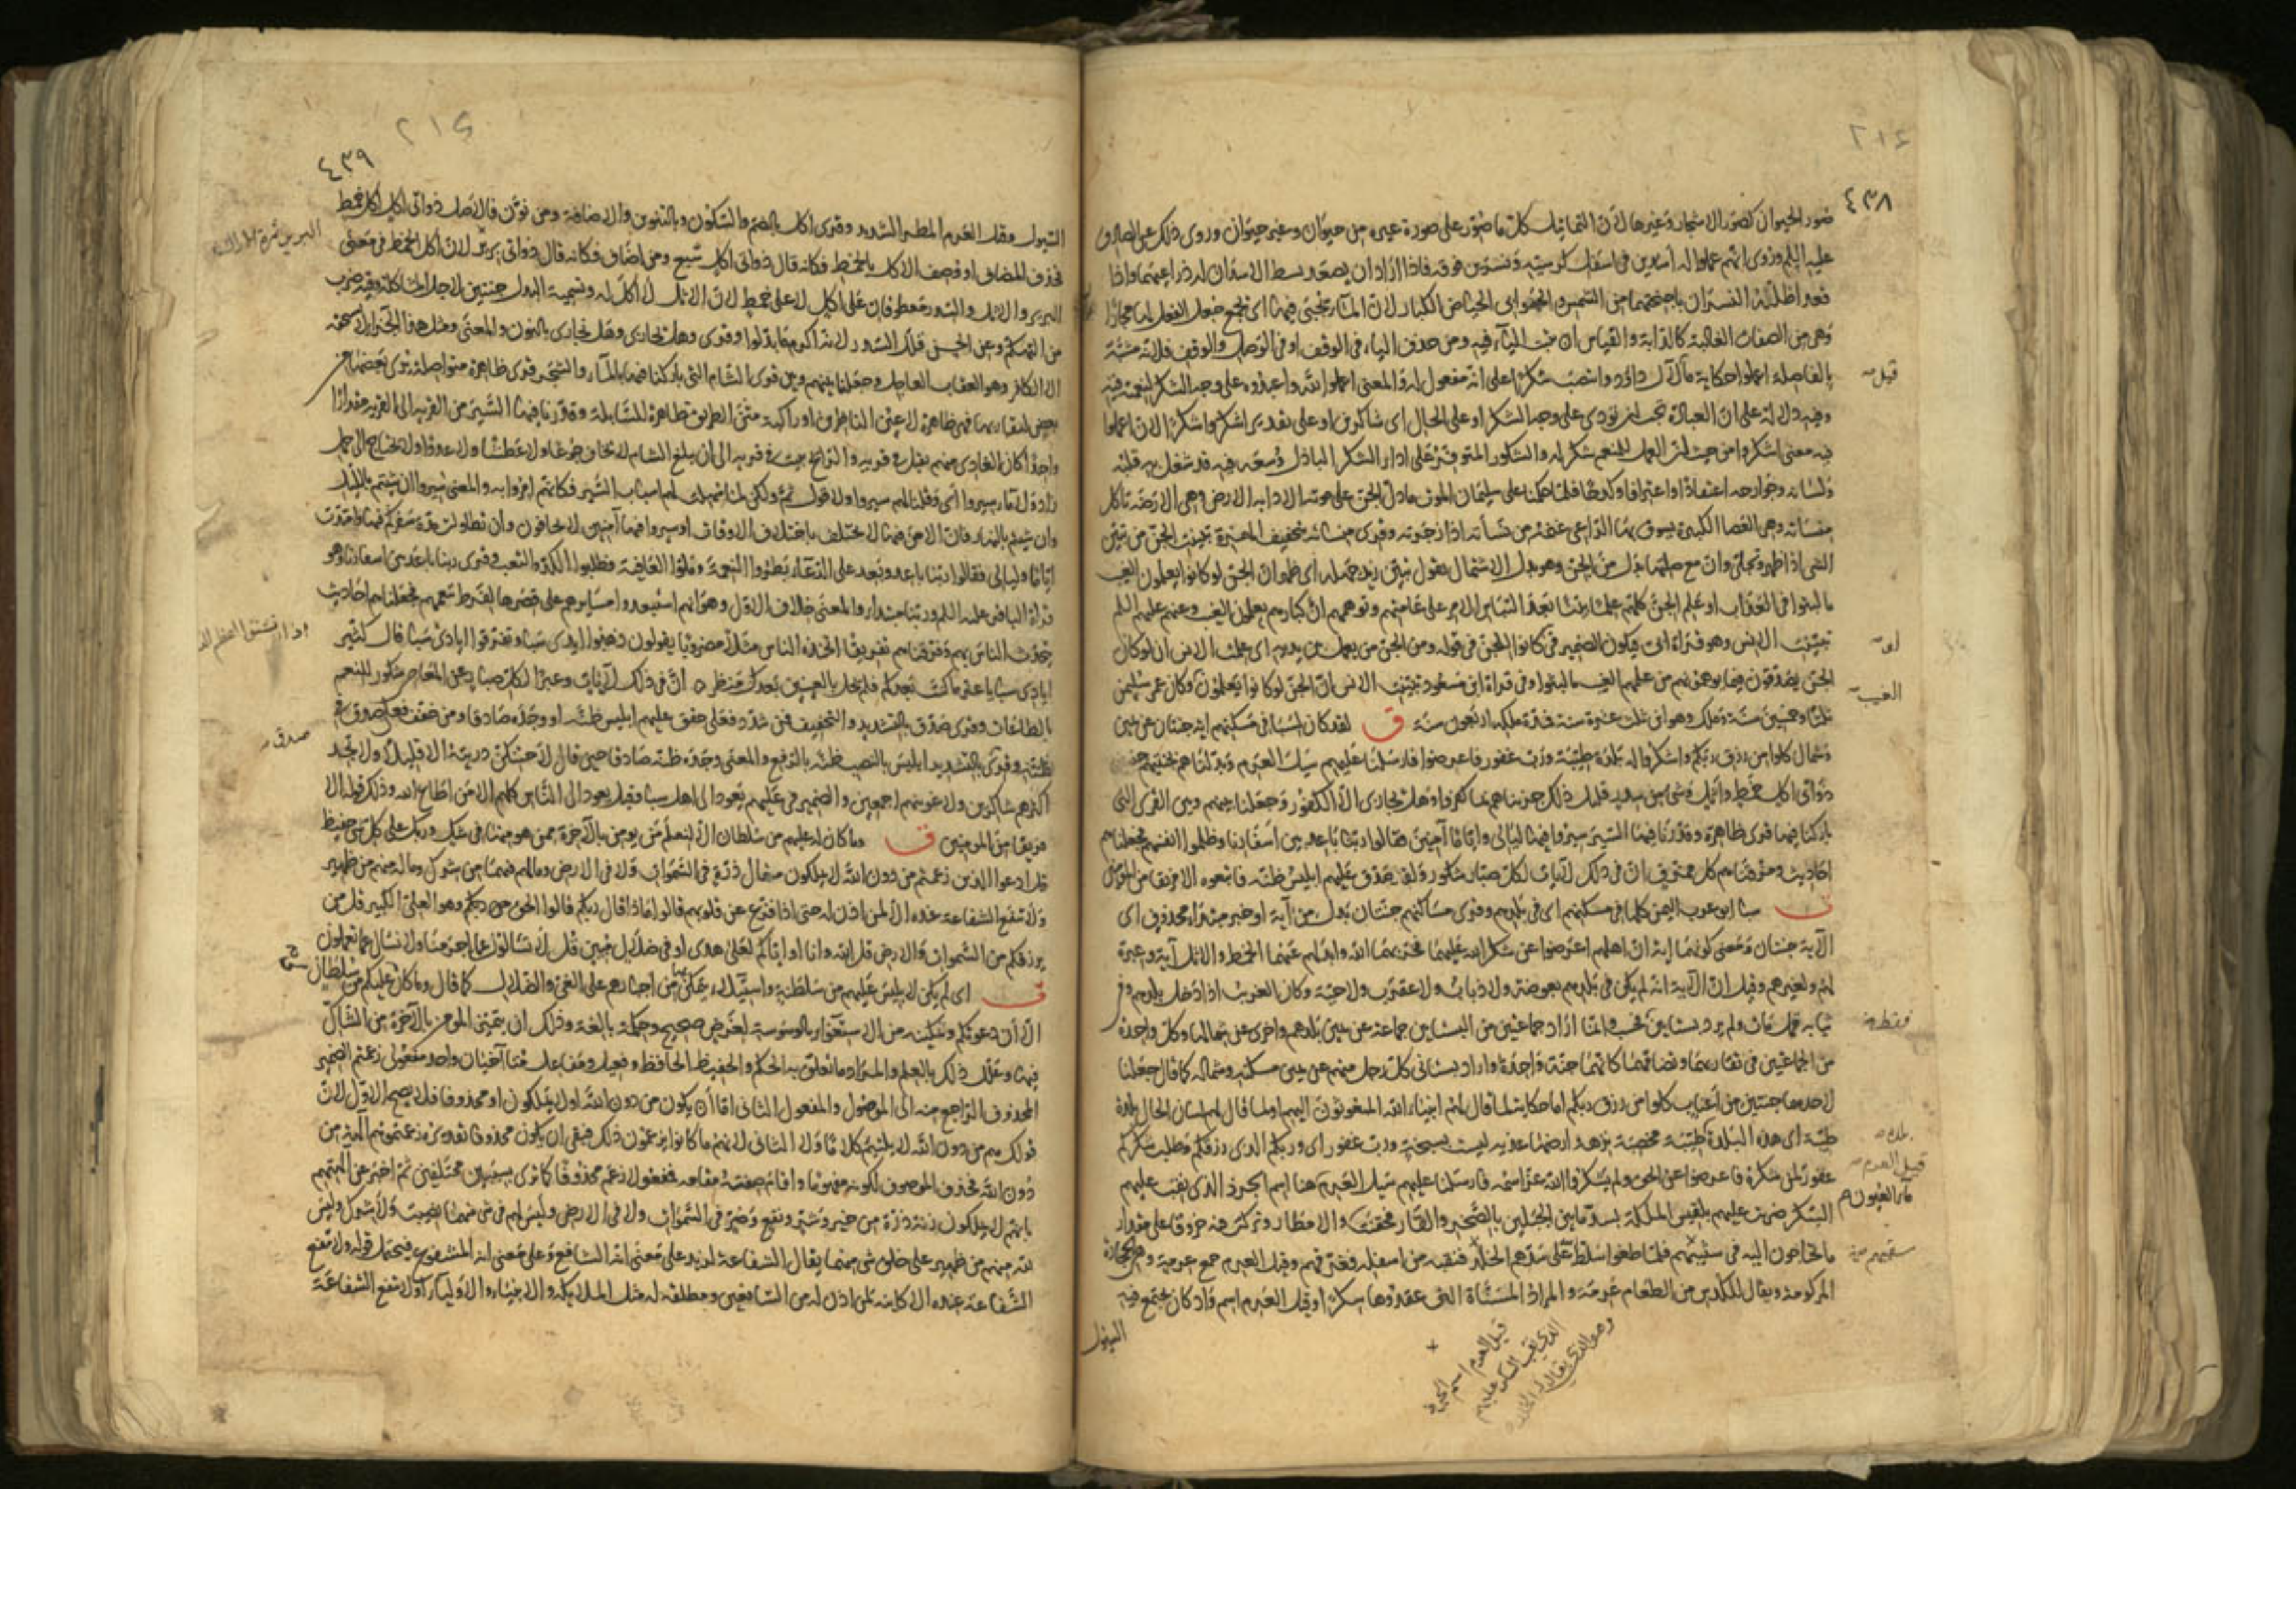 ٤٣٨
صور الحيوان كصور الاشجار وغيرها لان التماثيل كل ما صور على صورة غيره من حيوان وغير حيوان وروى ذلك عن الصادق
عليه السلم وروى انهم عملوا له اسدين فى اسفل كرسيه ونسرين فوقه فاذا اراد ان يصعد بسط الاسدان له ذراعيهما واذا
قعد اظله النسران باجنحتهما من الشمس والجوابى الحياض الكبار لان الماء يجبى فيها اى يجمع جعل الفعل لها مجازا
وهى من الصفات الغالبة كالدابة والقياس ان يثبت الياء فيه ومن حذف الياء فى الوقف او فى الوصل والوقف فلانه مشبه
بالفاصلة اعملوا حكاية ما قال آل داود وانتصب شكرا على انه مفعول له والمعنى اعملوا لله واعبدوه على وجه الشكر لنعمته
وفيه دلالة على ان العبادة تجب ان تؤدى على وجه الشكر او على الحال اى شاكرين او على تقدير اشكروا شكرا لان اعملوا
فيه معنى اشكروا من حيث ان العمل للمنعم شكر له والشكور المتوفر على اداء الشكر الباذل وسعه فيه قد شغل به قلبه
ولسانه وجوارحه اعتقادا واعترافا وكدحا فلما حكمنا على سليمن الموت ما دل الجن على موته الا دابة الارض وهى الارضة تاكل
منساته وهى العصا الكبيرة يسوق بها الراعى غنمه من نسأته اذا زجرته وقرى منساته بتخفيف الهمزة تبينت الجن من تبين
الشى اذا ظهر وتجلى وان مع صلتها بدل من الجن وهو بدل الاشتمال يقول تبين زيد جهله اى ظهر ان الجن لو كانوا يعلمون الغيب
ما لبثوا فى العذاب او علم الجن كلهم علما بينا بعد التباس الامر على عامتهم وتوهمهم ان كبارهم يعلمون الغيب وعنهم عليهم السلم
تبينت الانس وهو قراءة ابى فيكون الضمير فى كانوا للجن فى قوله ومن الجن من يعمل بين يديه اى علمت الانس ان لو كان
الجن يصدقون فيما يوهمونهم من علمهم الغيب ما لبثوا وفى قراءة ابن مسعود تبينت الانس ان الجن لو كانوا يعلمون وكان عمر سليمن
ثلثا وخمسين سنة وملك وهو ابن ثلث عشرة سنة فمدة ملكه اربعون سنة ق لقد كان لسبا فى مسكنهم اية جنتان عن يمين
وشمال كلوا من رزق ربكم واشكروا له بلدة طيبة ورب غفور فاعرضوا فارسلنا عليهم سيل العرم وبدلناهم بجنتيهم جنتين
ذواتى اكل خمط واثل وشى من سدر قليل ذلك جزيناهم بما كفروا وهل نجازى الا الكفور وجعلنا بينهم وبين القرى التى
باركنا فيها قرى ظاهرة وقدرنا فيها السير سيروا فيها ليالى واياما آمنين فقالوا ربنا باعد بين اسفارنا وظلموا انفسهم فجعلناهم
احاديث ومزقناهم كل ممزق ان فى ذلك لآيات لكل صبار شكور ولقد صدق عليهم ابليس ظنه فاتبعوه الا فريقا من المؤمنين
ق سبا ابو عرب اليمن كلها فى مسكنهم اى فى بلدهم وقرى مساكنهم جنتان بدل من آية او خبر مبتدأ محذوف اى
الآية جنتان ومعنى كونهما آية ان اهلهم اعرضوا عن شكر الله عليهما فخربهما الله وابدلهم عنهما الخمط والاثل آية وعبرة
لهم ولغيرهم وقيل ان الآية انه لم يكن فى بلدهم بعوضة ولا ذباب ولا عقرب ولا حية وكان الغريب اذا دخل بلدهم وفى
ثيابه قمل مات ولم يرد بستانين فحسب وانما اراد جماعتين من البساتين جماعة عن يمين بلدهم واخرى عن شمالها وكل واحدة
من الجماعتين فى تقاربهما وتضامهما كانهما جنة واحدة او اراد بستانى كل رجل منهم عن يمين مسكنه وشماله كما قال جعلنا
لاحدهما جنتين من اعناب كلوا من رزق ربكم اما حكاية لما قال لهم انبياء الله المبعوثون اليهم او لما قال لهم لسان الحال بلدة
طيبة اى هذه البلدة طيبة مخصبة نزهة ارضها عذبة ليست بسبخة ورب غفور اى وربكم الذى رزقكم وطلب شكركم
غفور لمن شكره فاعرضوا عن الحق ولم يشكروا الله عز اسمه فارسلنا عليهم سيل العرم هنا اسم الجرذ الذى نقب عليهم
السكر ضربت عليهم بلقيس الملكة بسد ما بين الجبلين بالصخر والقار فحقنت والامطار وتركت فيه خروقا على مقدار
ما يحتاجون اليه فى سقيهم فلما طغوا سلط على سدهم الخلد فنقبه من اسفله فغرقهم وقيل العرم جمع عرمة وهى الحجارة
المركومة ويقال للكدس من الطعام عرمة والمراد المسناة التى عقدوها سكرا وقيل العرم اسم واد كان يجتمع فيه
السيول
قيل
الغيب
فقط
بلدهم
قيل العرم
ماء العيون
سقيهم
قيل العرم اسم الجرذ
الذى نقب السكر عليهم
وهو الذى يقال له الخلد
٤٣٩
السيول وقيل العرم المطر الشديد وقرى اكل بالضم والسكون وبالتنوين والاضافة ومن نون فالاصل ذواتى اكل اكل خمط
فحذف المضاف او وصف الاكل بالخمط فكانه قال ذواتى اكل بشع ومن اضاف فكانه قال ذواتى برير لان اكل الخمط فى معنى
البرير والاثل والسدر معطوفان على اكل لا على خمط لان الاثل لا اكل له وتسمية البدل جنتين لاجل المشاكلة وفيه ضرب
من التهكم وعن الحسن قلل السدر لانه اكرم ما بدلوا وقرى وهل يجازى وهل نجازى بالنون والمعنى ومثل هذا الجزاء لا يستحقه
الا الكافر وهو العقاب العاجل وجعلنا بينهم وبين قرى الشام التى باركنا فيها بالماء والشجر قرى ظاهرة متواصلة يرى بعضها من
بعض لتقاربها فهى ظاهرة لاعين الناظرين او راكبة متن الطريق ظاهرة للسابلة وقدرنا فيها السير من القرية الى القرية مقدارا
واحدا كان الغادى منهم يقيل فى قرية والرائح يبيت فى قرية الى ان يبلغ الشام لا يخاف جوعا ولا عطشا ولا عدوا ولا يحتاج الى حمل
زاد ولا ماء سيروا اى وقلنا لهم سيروا ولا قول ثم ولكن لما تهيأت لهم اسباب السير فكانهم امروا به والمعنى سيروا ان شئتم بالليل
وان شئتم بالنهار فان الامن فيها لا يختلف باختلاف الاوقات او سيروا فيها آمنين لا تخافون وان تطاولت مدة سفركم فيها وامتدت
اياما وليالى فقالوا ربنا باعد وبعد على الدعاء بطروا النعمة وملوا العافية فطلبوا الكد والتعب وقرى ربنا باعد بين اسفارنا وهو
قراءة الباقر عليه السلم وربنا مبتدأ والمعنى خلاف الاول وهو انهم استبعدوا مسايرهم على قصرها لفرط تنعمهم فجعلناهم احاديث
يتحدث الناس بهم وفرقناهم تفريقا اتخذه الناس مثلا مضروبا يقولون ذهبوا ايدى سبا وتفرقوا ايادى سبا قال كثير
ايادى سبا يا عز ما كنت بعدكم فلم يحل بالعينين بعدك منظر ه ان فى ذلك لآيات وعبرا لكل صبار عن المعاصى شكور للنعم
بالطاعات وقرى صدق بالتشديد والتخفيف فمن شدد فعلى حقق عليهم ابليس ظنه او وجده صادقا ومن خفف فعلى صدق فى
ظنه وقرى بالتشديد ابليس بالنصب ظنه بالرفع والمعنى وجده ظنه صادقا حين قال لاحتنكن ذريته الا قليلا ولا تجد
اكثرهم شاكرين ولاغوينهم اجمعين والضمير فى عليهم يعود الى اهل سبا وقيل يعود الى الناس كلهم الا من اطاع الله وذلك قوله الا
فريقا من المومنين ق وما كان له عليهم من سلطان الا لنعلم من يومن بالآخرة ممن هو منها فى شك وربك على كل شى حفيظ
قل ادعوا الذين زعمتم من دون الله لا يملكون مثقال ذرة فى السموات ولا فى الارض وما لهم فيهما من شرك وما له منهم من ظهير
ولا تنفع الشفاعة عنده الا لمن اذن له حتى اذا فزع عن قلوبهم قالوا ماذا قال ربكم قالوا الحق وهو العلى الكبير قل من
يرزقكم من السموات والارض قل الله وانا او اياكم لعلى هدى او فى ضلال مبين قل لا تسالون عما اجرمنا ولا نسال عما تعملون
ق اى لم يكن لابليس عليهم من سلطنة واستيلاء يتمكن بها من اجبارهم على الغى والضلال كما قال وما كان لى عليكم من سلطان
الا ان دعوتكم وتمكينه من الاستغواء بالوسوسة لغرض صحيح وحكمة بالغة وذلك ان يتميز المومن بالآخرة من الشاك
فيها وعلل ذلك بالعلم والمراد ما تعلق به الحكم والحفيظ الحافظ وفعيل ومفاعل متآخيان واحد مفعولى زعمتم الضمير
المحذوف الراجع منه الى الموصول والمفعول الثانى اما ان يكون من دون الله او لا يملكون او محذوفا فلا يصح الاول لان
قولك هم من دون الله لا يلتئم كلاما ولا الثانى لانهم ما كانوا يزعمون ذلك فبقى ان يكون محذوفا تقديره زعمتموهم آلهة من
دون الله فحذف الموصوف لكونه مفهوما واقام صفته مقامه فمفعولا زعم محذوفان كما ترى بسببين مختلفين ثم اخبر عن آلهتهم
بانهم لا يملكون زنة ذرة من خير وشر ونفع وضر فى السموات ولا فى الارض وليس لهم فى شى منهما نصيب ولا شرك وليس
لله منهم من ظهير على خلق شى منهما يقال الشفاعة لزيد على معنى انه الشافع وعلى معنى انه المشفوع فيحتمل قوله ولا تنفع
الشفاعة عنده الا كاينة لمن اذن له من الشافعين ومطلقه له مثل الملائكة والانبياء والاولياء او لا تنفع الشفاعة
البرير ثمرة الاراك
صدق